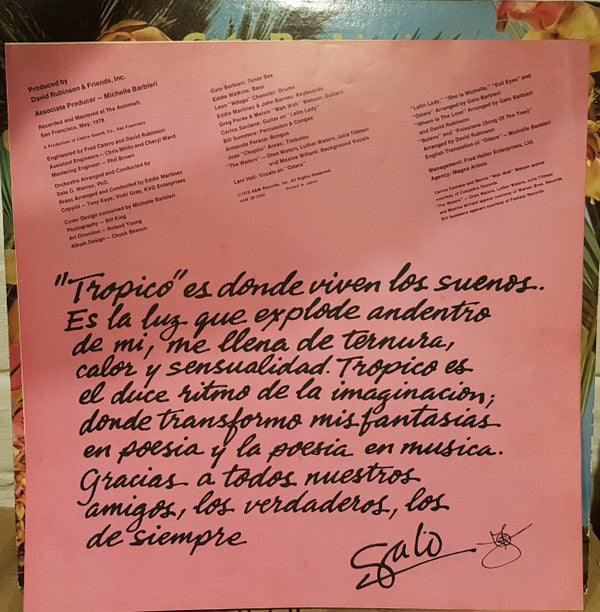 Produced by
David Rubinson & Friends, Inc.
Associate Producer — Michelle Barbieri
Recorded and Mastered at The Automatt,
San Francisco, May, 1978
A Production of Catero Sound, Co., San Francisco
Engineered by Fred Catero and David Rubinson
Assistant Engineers — Chris Minto and Cheryl Ward
Mastering Engineer — Phil Brown
Orchestra Arranged and Conducted by
Dale O. Warren, PhD.
Brass Arranged and Conducted by Eddie Martinez
Copyist — Tony Kaye; Vicki Gray, KVG Enterprises
Cover Design conceived by Michelle Barbieri
Photography — Bill King
Art Direction — Roland Young
Album Design — Chuck Beeson
Gato Barbieri: Tenor Sax
Eddie Watkins: Bass
Leon "Ndugu" Chancler: Drums
Eddie Martinez & John Barnes: Keyboards
Greg Poree & Melvin "Wah Wah" Watson: Guitars
Carlos Santana: Guitar on "Latin Lady"
Bill Summers: Percussion & Congas
Armando Peraza: Bongos
Jose "Chepito" Areas: Timbales
"The Waters" — Oren Waters, Luther Waters, Julia Tillman
and Maxine Willard: Background Vocals
Lani Hall: Vocals on "Odara"
©1978 A&M Records, Inc. All Rights Reserved.
Printed in
"Latin Lady," "She is Michelle," "Evil Eyes" and
"Odara" Arranged by Gato Barbieri
"Where Is The Love" Arranged by Gato Barbieri
and David Rubinson
"Bolero" and "Poinciana (Song Of The Tree)"
Arranged by David Rubinson
English Translation of "Odara" — Michelle Barbieri
Management: Fred Heller Enterprises, Ltd.
Agency: Magna Artists
Carlos Santana and Melvin "Wah Wah" Watson appear
courtesy of Columbia Records
"The Waters" — Oren Waters, Luther Waters, Julia Tillman
and Maxine Willard appear courtesy of Warner Bros. Records
Bill Summers appears courtesy of Fantasy Records
"Tropico" es donde viven los suenos.
Es la luz que explode andentro
de mi, me llena de ternura,
calor y sensualidad. Tropico es
el duce ritmo de la imaginacion;
donde transformo mis fantasias
en poesia y la poesia en musica.
Gracias a todos nuestros
amigos, los verdaderos, los
de siempre
Gato